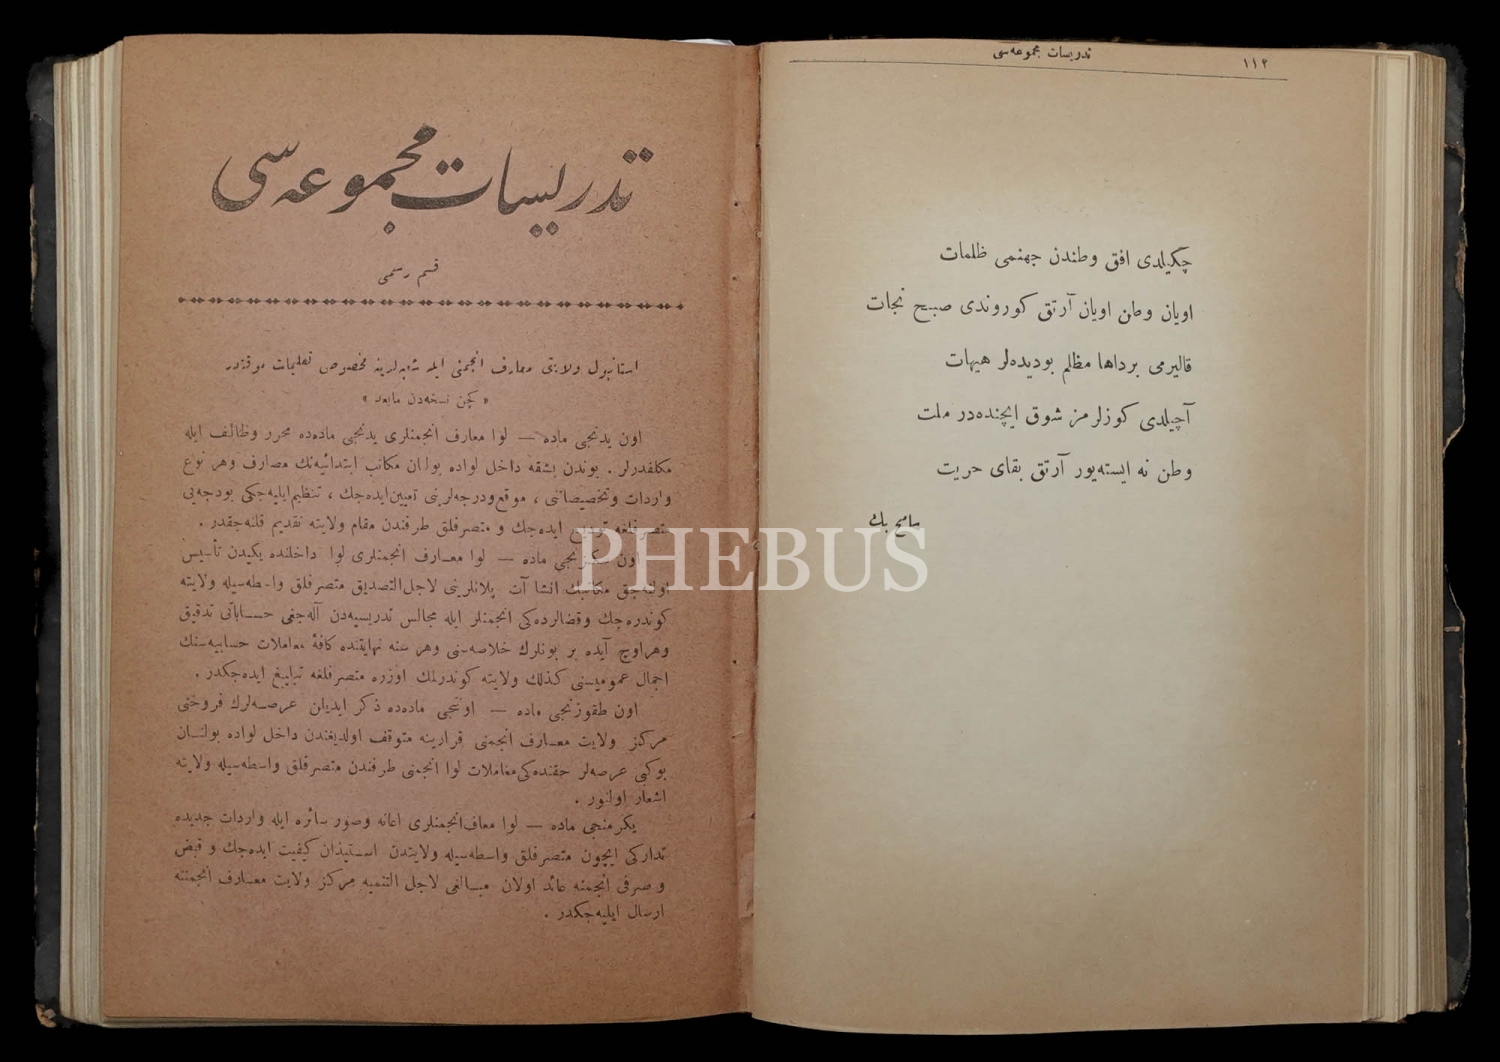 تدریسات مجموعه‌سی
١١٢
چکیلدی افق وطندن جهنمی ظلمات
اویان وطن اویان آرتق کوروندی صبح نجات
قالیرمی برداها مظلم بودیده‌لر هیهات
آچیلدی کوزلرمز شوق ایچنده‌در ملت
وطن نه ایسته‌یور آرتق بقای حریت
سامح بك
تدریسات مجموعه‌سی
قسم رسمی
استانبول ولایتی معارف انجمنی ایله شعبه‌لرینه مخصوص تعلیمات موقته‌در
« کچن نسخه‌دن مابعد »
اون یدنجی ماده — لوا معارف انجمنلری یدنجی ماده‌ده محرر وظائف ایله
مکلفدرلر . بوندن بشقه داخل لواده بولنان مکاتب ابتدائیه‌نك مصارف وهر نوع
واردات وتخصیصاتنی ، موقع ودرجه‌لرینی تعیین ایده‌جك ، تنظیم ایلیه‌جکی بودجه‌یی
متصرفلغه تودیع ایده‌جك و متصرفلق طرفندن مقام ولایته تقدیم قلنه‌جقدر .
اون سکزنجی ماده — لوا معارف انجمنلری لوا داخلنده یکیدن تأسیس
اولنه‌جق مکاتبك انشاآت پلانلرینی لاجل التصدیق متصرفلق واسطه‌سیله ولایته
کوندره‌جك وقضالرده‌کی انجمنلر ایله مجالس تدریسیه‌دن آله‌جغی حساباتی تدقیق
وهراوچ آیده بر بونلرك خلاصه‌سنی وهر سنه نهایتنده کافهٔ معاملات حسابیه‌سنك
اجمال عمومیسنی کذلك ولایته کوندرلمك اوزره متصرفلغه تبلیغ ایده‌جکدر .
اون طقوزنجی ماده — اوننجی ماده‌ده ذکر ایدیلن عرصه‌لرك فروختی
مرکز ولایت معارف انجمنی قرارینه متوقف اولدیغندن داخل لواده بولنان
بوکبی عرصه‌لر حقنده‌کی معاملات لوا انجمنی طرفندن متصرفلق واسطه‌سیله ولایته
اشعار اولنور .
یکرمنجی ماده — لوا معاف انجمنلری اعانه وصور سائره ایله واردات جدیده
تدارکی ایچون متصرفلق واسطه‌سیله ولایتدن استیذان کیفیت ایده‌جك و قبض
و صرفی انجمنه عائد اولان مبالغی لاجل التنمیه مرکز ولایت معارف انجمننه
ارسال ایلیه‌جکدر .
PHEBUS